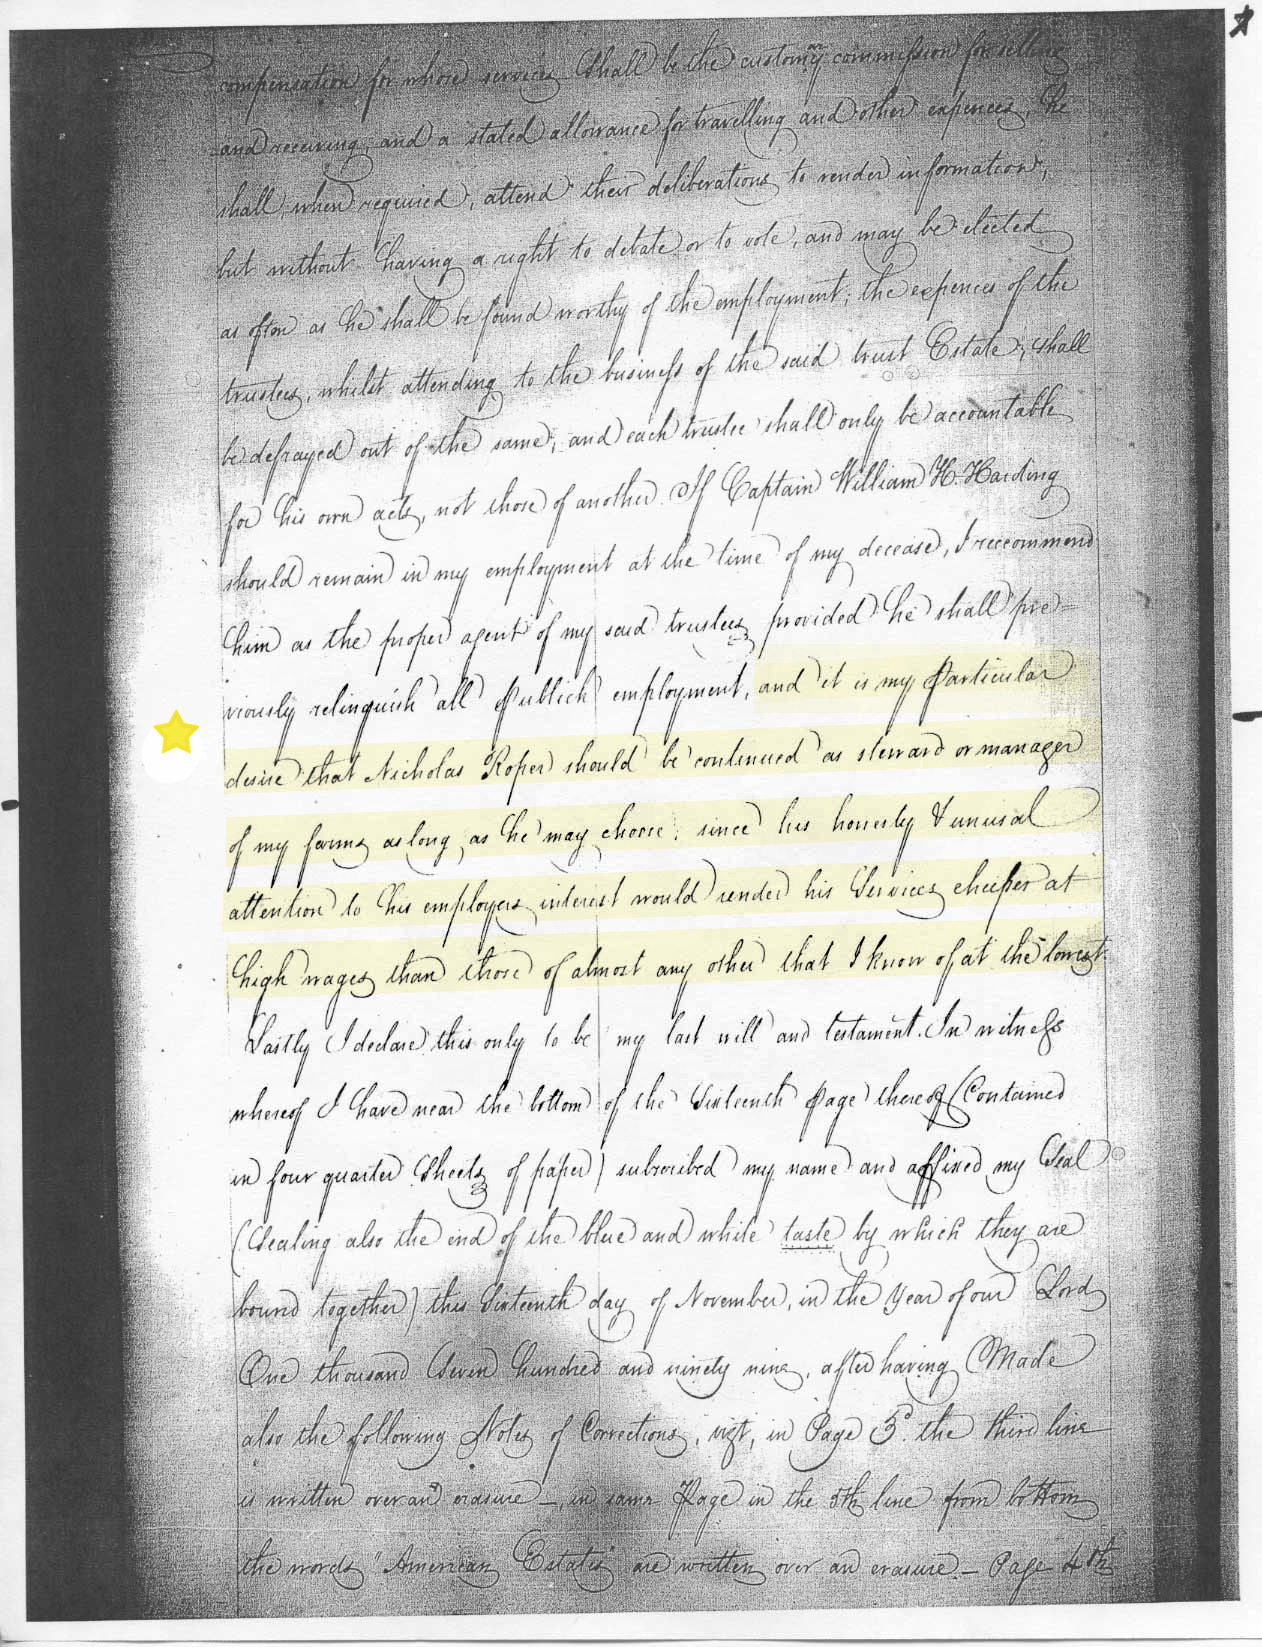 compensation for whose services Shall be the customy commission for selling
and receiving, and a stated allowance for travelling and other expences, he
shall, when required, attend their deliberations to render information,
but without having a right to debate or to vote, and may be elected
as often as he shall be found worthy of the employment; the expences of the
trustees, whilst attending to the business of the said trust Estate, shall
be defrayed out of the same, and each trustee shall only be accountable
for his own acts, not those of another. If Captain William H. Harding
should remain in my employment at the time of my decease, I reccommend
him as the proper agent of my said trustees, provided he shall pre=
viously relinquish all Publick employment, and it is my Particular
desire that Nicholas Roper should be continued as steward or manager
of my farms as long as he may choose, since his honesty & unusal
attention to his employers interest would render his Services cheeper at
high wages than those of almost any other that I know of at the lowest.
Lastly I declare this only to be my last will and testament. In witness
whereof I have near the bottom of the Sixteenth Page thereof (Contained
in four quarter Sheets of paper) subscribed my name and affixed my Seal
(Sealing also the end of the blue and white taste by which they are
bound together) this Sixteenth day of November, in the Year of our Lord
One thousand Seven hundred and ninety nine, after having Made
also the following Notes of Corrections, vizt, in Page 3d. the third line
is written over an erasure —, in same Page in the 5th line from bottom
the words "American Estates" are written over an erasure. — Page 4th